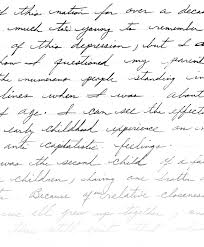 of this nation for over a deca
much too young to remember
of this depression, but I
how I questioned my parent
the numerous people standing in
lines when I was about
of age. I can see the effects
early childhood experience on
anti capitalistic feelings.
was the second child of a
children, having one brother
Because of relative closeness
grew up together and